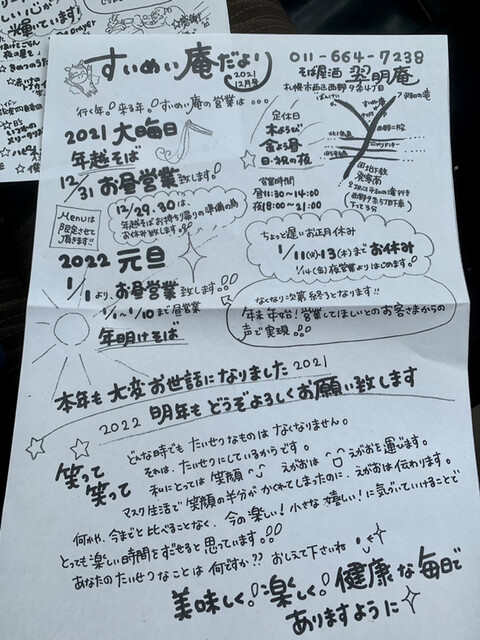 いい心が
輝いています!
prayer
すいめい庵だより
2021
12月号
011-664-7238
そば居酒 翠明庵
札幌市西区西野9条4丁目
行く年。来る年。すいめい庵の営業は・・・
2021 大晦日
年越そば
12/31 お昼営業致します!
Menuは
限定させて
頂きます!!
12/29.30は、
年越そばお持ち帰りの準備の為
お休み致します。
定休日
木ようび
金よう昼
日・祝の夜
営業時間
昼11:30〜14:00
夜18:00〜21:00
平和の滝
西野二股
地下鉄
発寒南
西野9条5丁目下車
下って3分
2022 元旦
1/1より、お昼営業致します。
1/1〜1/10まで昼営業
年明けそば
ちょっと遅いお正月休み
1/11(火)〜13(木)までお休み
1/14(金)夜営業よりはじめます。
なくなり次第終りとなります!!
年末年始!営業してほしいとのお客さまからの
声で実現!!
本年も大変お世話になりました 2021
2022 明年もどうぞよろしくお願い致します
笑って
笑って
どんな時でもたいせつなものはなくなりません。
それは、たいせつにしているからです。
私にとっては笑顔 えがおは えがおを運びます。
マスク生活で笑顔の半分がかくれてしまったのに、えがおは伝わります。
何かや、今までと比べることなく、今の楽しい!小さな嬉しい!に気づいていけることで
とっても楽しい時間をすごせると思っています。
あなたのたいせつなことは何ですか?? おしえて下さいね
美味しく!楽しく!健康な毎日で
ありますように